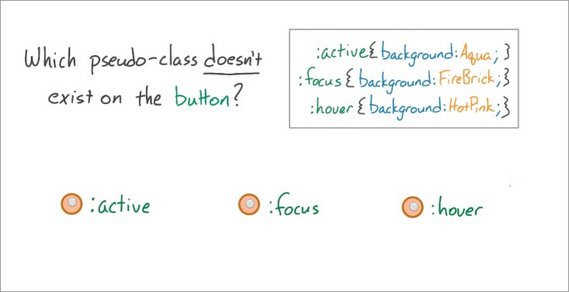 Which pseudo-class doesn't
exist on the button?
:active{background:Aqua;}
:focus{background:FireBrick;}
:hover{background:HotPink;}
:active
:focus
:hover